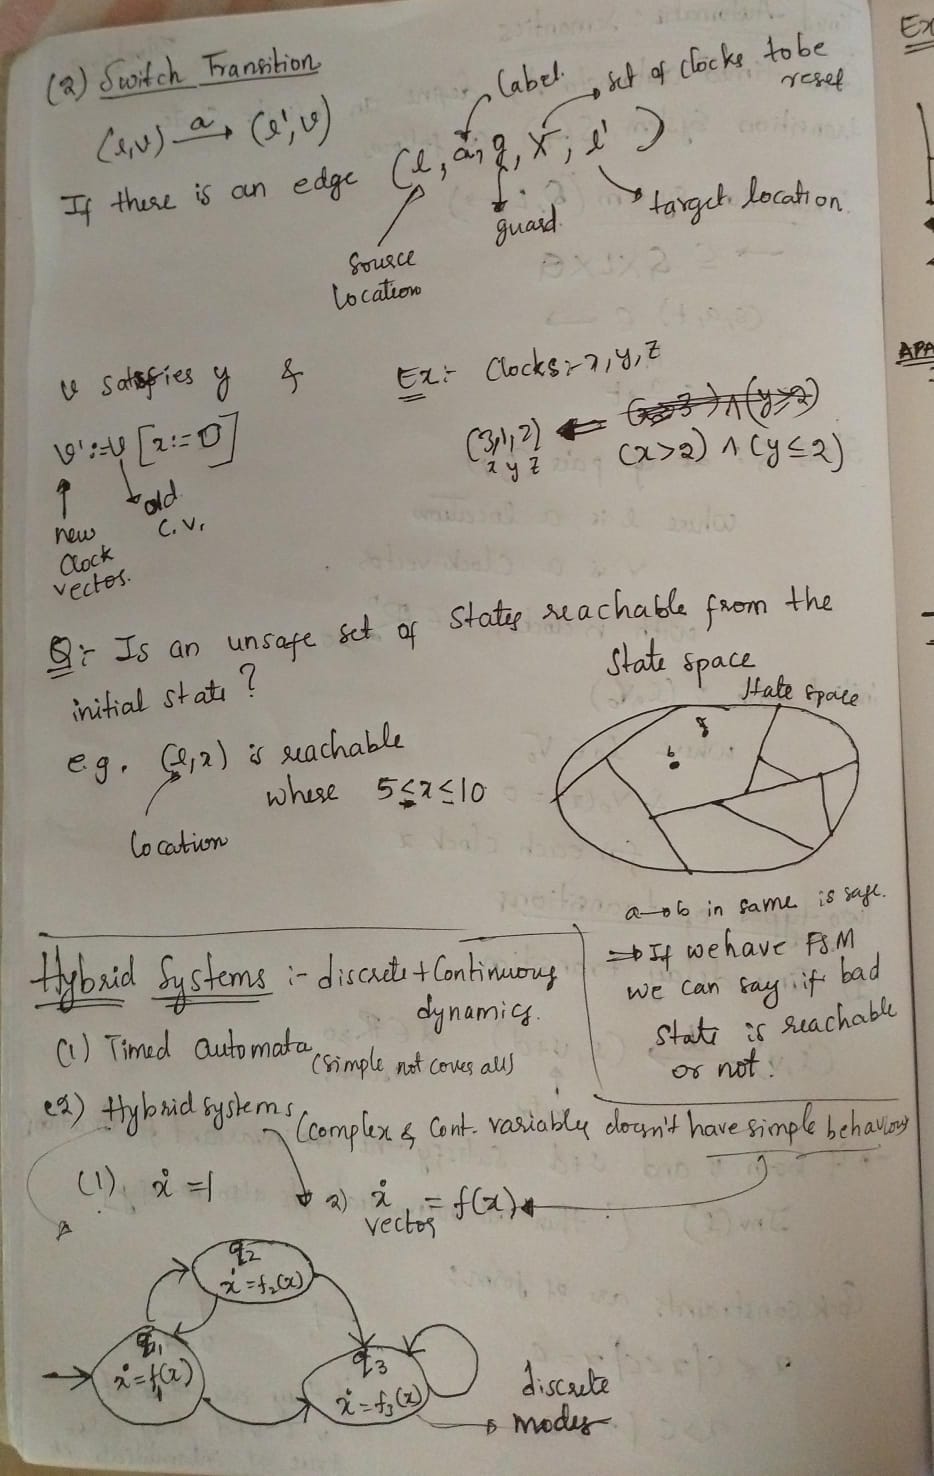 (2) Switch Transition
(l,v) a→ (l',v)
label.
set of clocks to be
reset
If there is an edge (l, a, g, X, l')
source
location
guard
target location.
v satisfies y &
v' := v [x:=0]
new
clock
vector.
old
C.V.
Ex:- Clocks:- x, y, z
(3,1,2) ← (x≥3) ∧ (y≥2)
x y z (x>2) ∧ (y≤2)
Q:- Is an unsafe set of states reachable from the
initial state? State space
e.g. (l,x) is reachable
where 5≤x≤10
location
State space
b
a→b in same is safe.
⇒ If we have FSM
we can say if bad
state is reachable
or not.
Hybrid Systems :- discrete + Continuous
dynamics.
(1) Timed automata (simple not cover all)
(2) Hybrid systems (complex & cont. variably doesn't have simple behaviour)
(1). ẋ = 1
2) ẋ = f(x)
vector
q2
ẋ = f2(x)
q1
ẋ = f1(x)
q3
ẋ = f3(x)
discrete
modes
Ex
APA